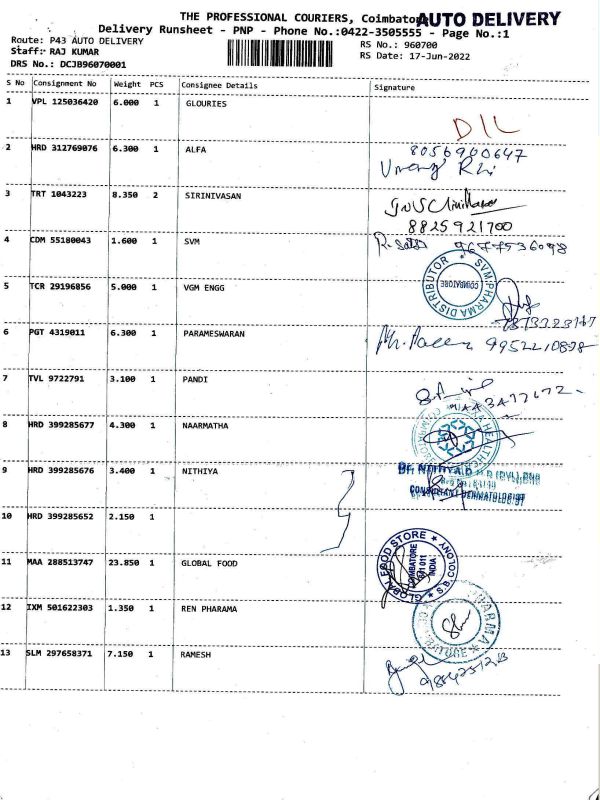 THE PROFESSIONAL COURIERS, Coimbator
AUTO DELIVERY
Delivery Runsheet - PNP - Phone No.:0422-3505555 - Page No.:1
Route: P43 AUTO DELIVERY
RS No.: 960700
Staff: RAJ KUMAR
RS Date: 17-Jun-2022
DRS No.: DCJB96070001
S No Consignment No Weight PCS Consignee Details Signature
1 VPL 125036420 6.000 1 GLOURIES
DIL
2 HRD 312769076 6.300 1 ALFA
8056900647
3 TRT 1043223 8.350 2 SIRINIVASAN
8825921700
4 CDM 55180043 1.600 1 SVM
9677536098
SVM PHARMA DISTRIBUTOR
COIMBATORE
5 TCR 29196856 5.000 1 VGM ENGG
6 PGT 4319011 6.300 1 PARAMESWARAN
7 TVL 9722791 3.100 1 PANDI
8 HRD 399285677 4.300 1 NAARMATHA
9 HRD 399285676 3.400 1 NITHIYA
CONSULTANT DERMATOLOGIST
10 HRD 399285652 2.150 1
11 MAA 288513747 23.850 1 GLOBAL FOOD
GLOBAL FOOD STORE
S.B. COLONY
COIMBATORE
641 011
INDIA
12 IXM 501622303 1.350 1 REN PHARAMA
13 SLM 297658371 7.150 1 RAMESH